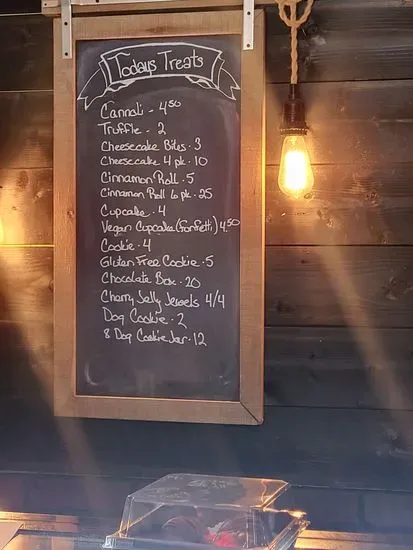 Todays Treats
Cannoli - 4.50
Truffle - 2
Cheesecake Bites - 3
Cheesecake 4 pk. - 10
Cinnamon Roll - 5
Cinnamon Roll 6 pk - 25
Cupcake - 4
Vegan Cupcake (Fonfetti) 4.50
Cookie - 4
Gluten Free Cookie - 5
Chocolate Box - 20
Cherry Jelly Jewels 4/4
Dog Cookie - 2
8 Dog Cookie Jar - 12